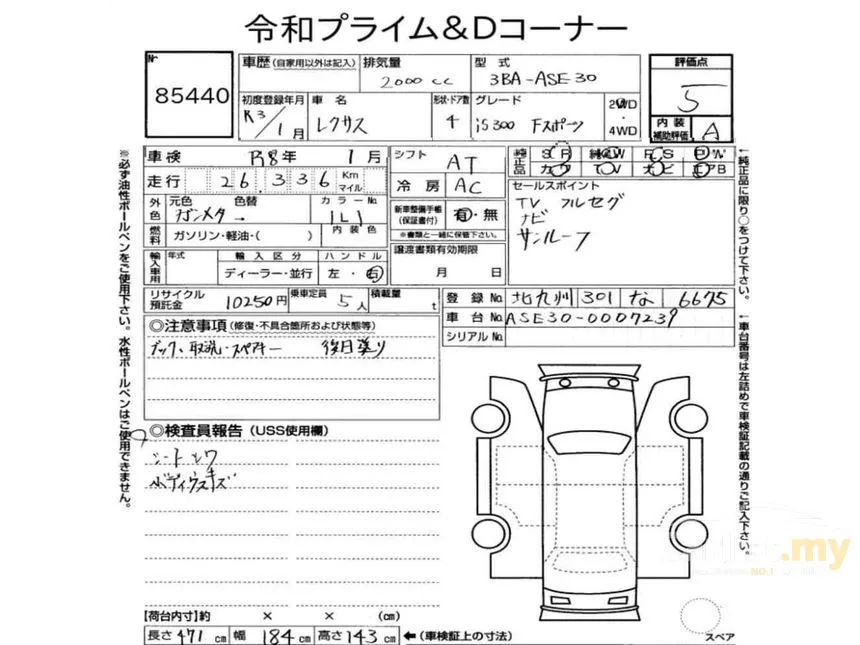 令和プライム&Dコーナー
№ 85440
車歴 (自家用以外は記入)
排気量 2000 cc
型式 3BA-ASE30
評価点 5
内装補助評価 A
初度登録年月 R3/1月
車名 レクサス
形状・ドア数 4
グレード iS300 Fスポーツ
2WD・4WD
車検 R8年 1月
シフト AT
純正品 SR 純AW P.S P.W
カワ TV ナビ エアB
走行 26,336 Km マイル
冷房 AC
セールスポイント
TV フルセグ
ナビ
サンルーフ
外色 元色 ガンメタ → 色替
カラーNo. 1L1
新車整備手帳(保証書付) 有・無
※書類と一緒に保管下さい。
燃料 ガソリン・軽油・( )
内装色
譲渡書類有効期限
月 日
輸入車用 年式
輸入区分 ディーラー・並行
ハンドル 左・右
リサイクル預託金 10250円
乗車定員 5人
積載量 t
登録No. 北九州 301 な 6675
車台No. ASE30-0007239
シリアルNo.
◎注意事項 (修復・不具合箇所および状態等)
ブック、取説・スペアキー 後日渡り
◎検査員報告 (USS使用欄)
シートシワ
ボディウスキズ
【荷台内寸】約 × × (cm)
長さ 471 cm 幅 184 cm 高さ 143 cm ←(車検証上の寸法)
スペア
※必ず油性ボールペンをご使用下さい。水性ボールペンはご使用できません。
↑純正品に限り○をつけて下さい。
↑車台番号は左詰めで車検証記載の通りご記入下さい。
.my
NO.1